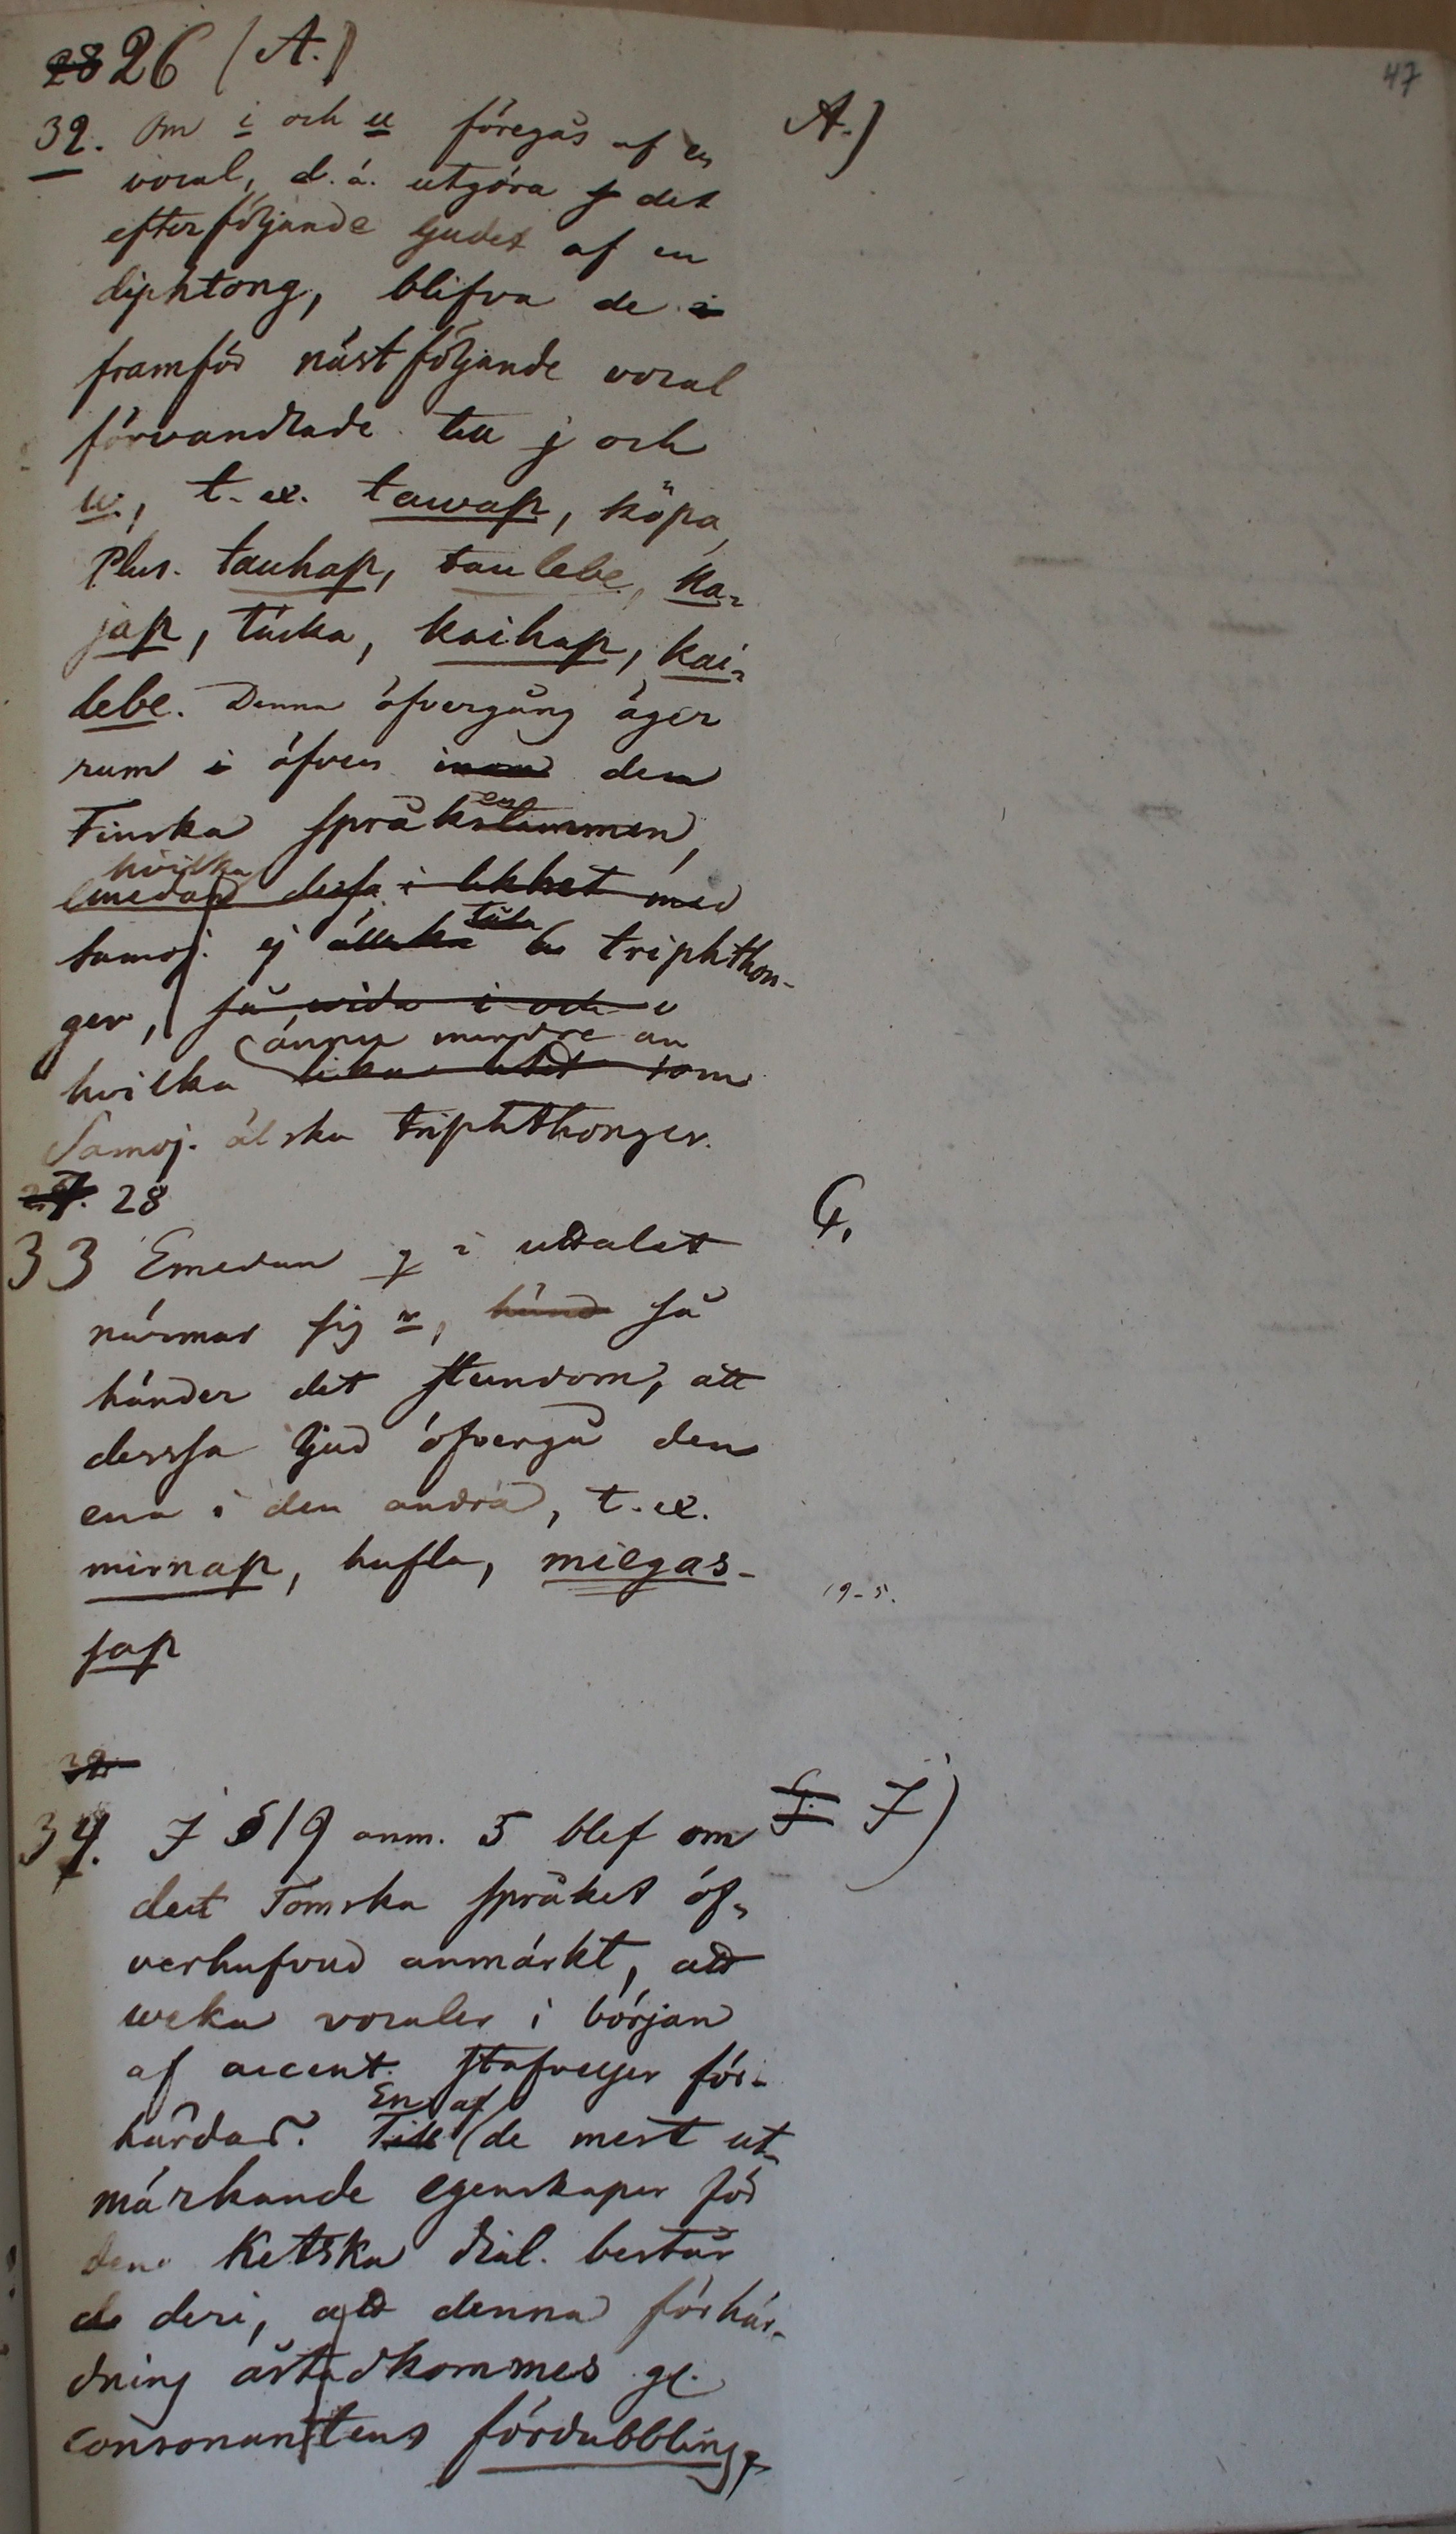 28 26 (A.)
47
A.)
32. Om i och u föregås af en
vocal, d. ä. utgöra det
efterföljande ljudet af en
diphtong, blifva de i
framför näst följande vocal
förvandlade till j och
w, t. ex. tawap, köpa,
Plur. tauhap, taulebe, ka-
jap, täcka, kaihap, kai-
lebe. Denna öfvergång äger
rum i äfven inom den
Finska språkstammen,
en
hvilka
emedan dessa i likhet med
Samoj. ej älska tåla triphthon-
ger, så vida i och u
ännu mindre än
hvilka lika litet som
Samoj. älska triphthonger.
27. 28
33 Emedan g i uttalet
G.
närmar sig r, händ så
händer det stundom, att
dessa ljud öfvergå den
ena i den andra, t. ex.
mirnap, hufla, milgas-
19-5.
sap
32.
34. I § 19 anm. 5 blef om
J. J)
det Tomska språket öf-
verhufvud anmärkt, att
weka vocaler i början
af accent. stafvelser för-
En af
hårdas. Till de mest ut-
märkande egenskaper för
den Ketska dial. består
de deri, att denna förhår-
dning åstadkommes ge.
consonantens fördubbling,